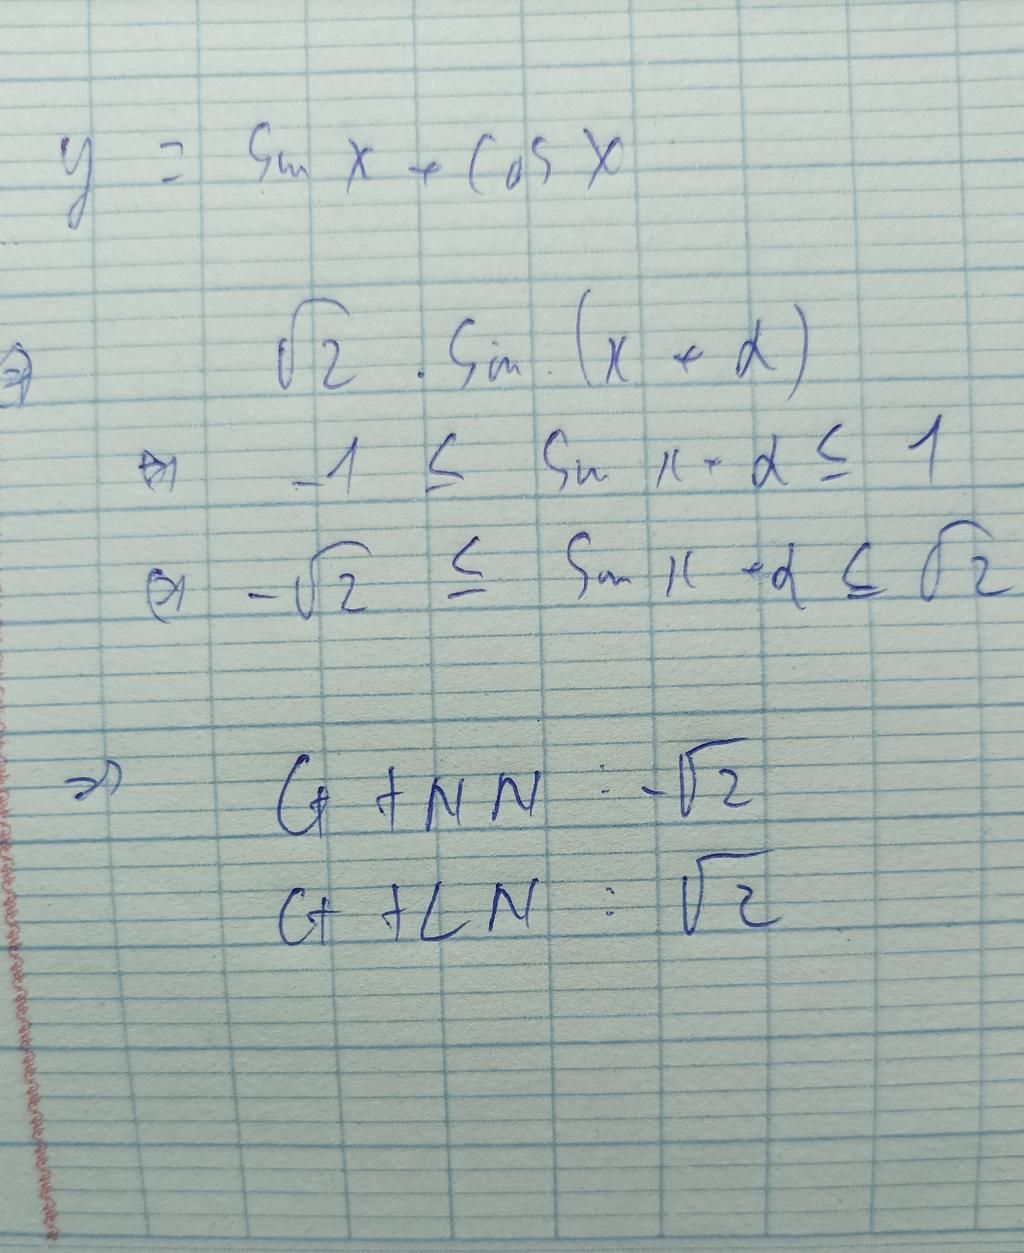 y = Sin x + Cos x
=> √2 . Sin (x + α)
<=> -1 ≤ Sin x + α ≤ 1
<=> -√2 ≤ Sin x + α ≤ √2
=> GTNN : -√2
GTLN : √2